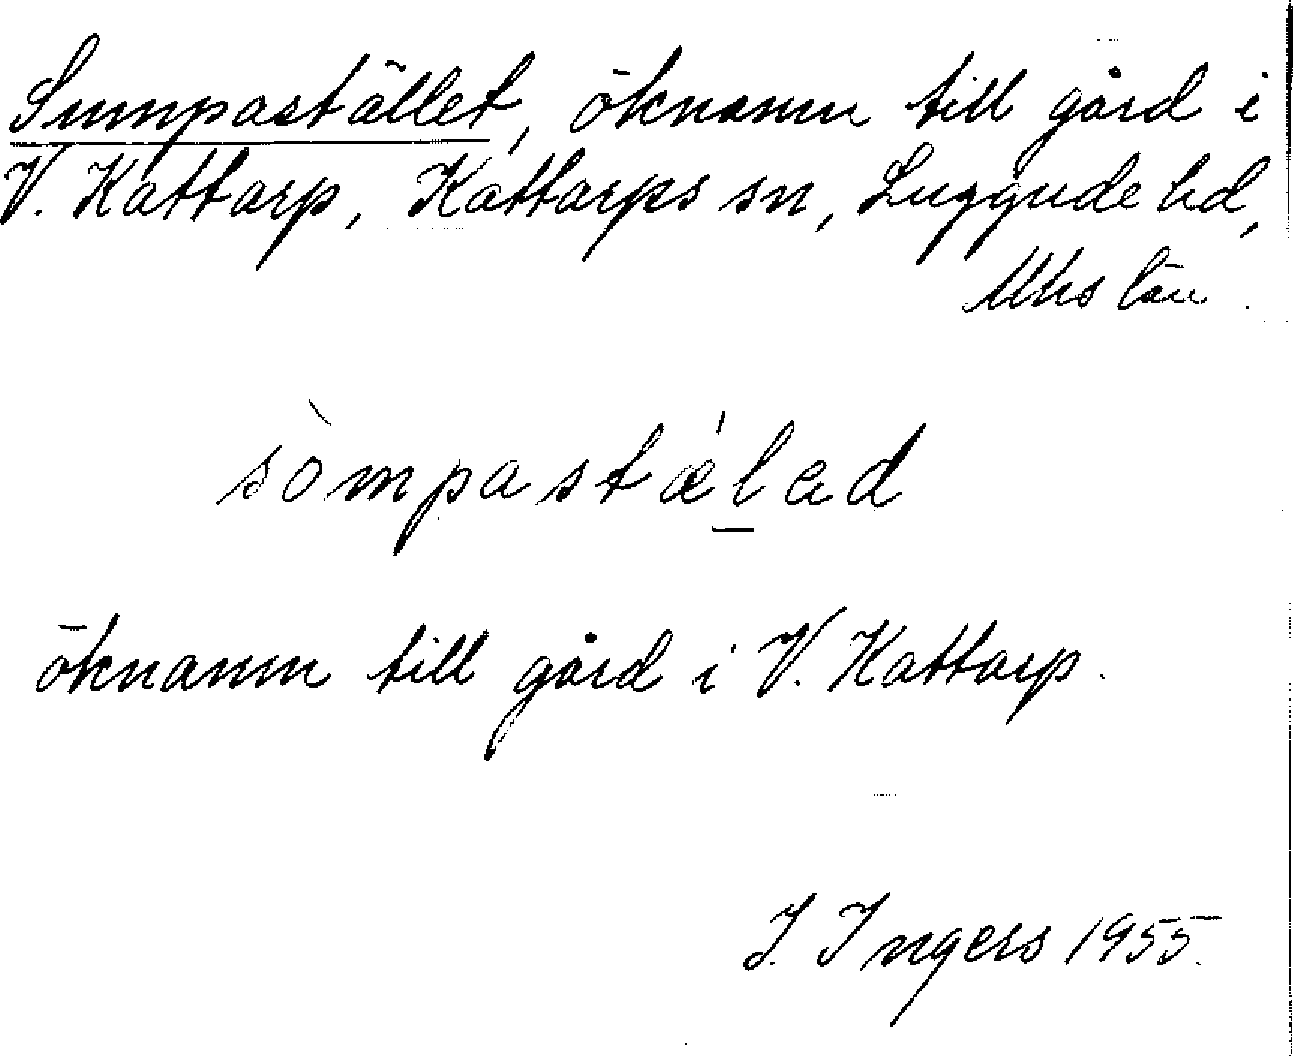 Sumpastället, öknamn till gård i
V. Kattarp, Kattarps sn, Luggude hd,
Mhs län.
sòmpastǽlad
öknamn till gård i V. Kattarp.
I. Ingers 1955.